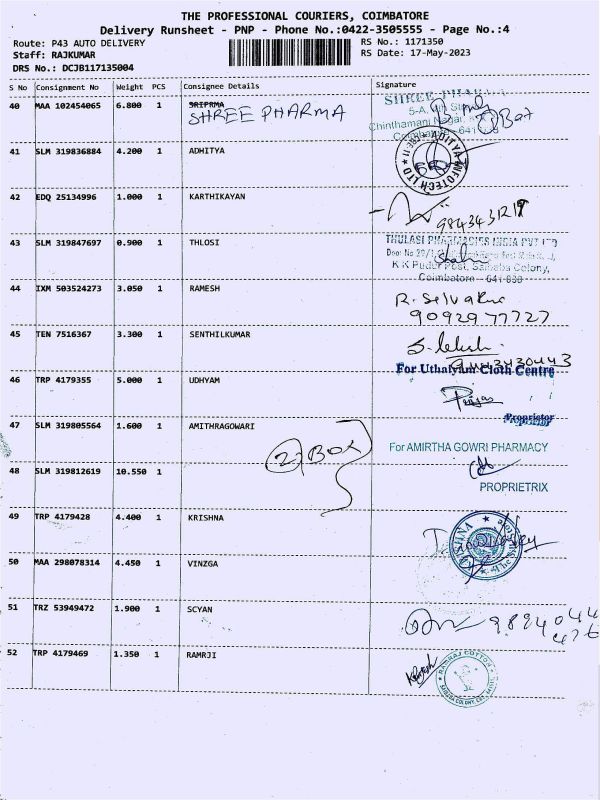 THE PROFESSIONAL COURIERS, COIMBATORE
Delivery Runsheet - PNP - Phone No.:0422-3505555 - Page No.:4
Route: P43 AUTO DELIVERY
RS No.: 1171350
Staff: RAJKUMAR
RS Date: 17-May-2023
DRS No.: DCJB117135004
S No Consignment No Weight PCS Consignee Details Signature
40 MAA 102454065 6.800 1 SRIPRMA
SHREE PHARMA
SHREE PHARMA
5-A,
Chinthamani Nagar,
Coimbatore - 641
Box
41 SLM 319836884 4.200 1 ADHITYA
ADITYA INFOTECH LTD
42 EDQ 25134996 1.000 1 KARTHIKAYAN
43 SLM 319847697 0.900 1 THLOSI
THULASI PHARMACIES INDIA PVT LTD
Door No 29/1,
K K Pudur Post, Saibaba Colony,
Coimbatore - 641 038
44 IXM 503524273 3.050 1 RAMESH
R. Selvakumar
9092977727
45 TEN 7516367 3.300 1 SENTHILKUMAR
9443430443
46 TRP 4179355 5.000 1 UDHYAM
For Uthaiyam Cloth Centre
Proprietor
47 SLM 319805564 1.600 1 AMITHRAGOWARI
2 Box
For AMIRTHA GOWRI PHARMACY
48 SLM 319812619 10.550 1
PROPRIETRIX
49 TRP 4179428 4.400 1 KRISHNA
KRISHNA
50 MAA 298078314 4.450 1 VINZGA
51 TRZ 53949472 1.900 1 SCYAN
9894044
476
52 TRP 4179469 1.350 1 RAMRJI
RAMRAJ COTTON